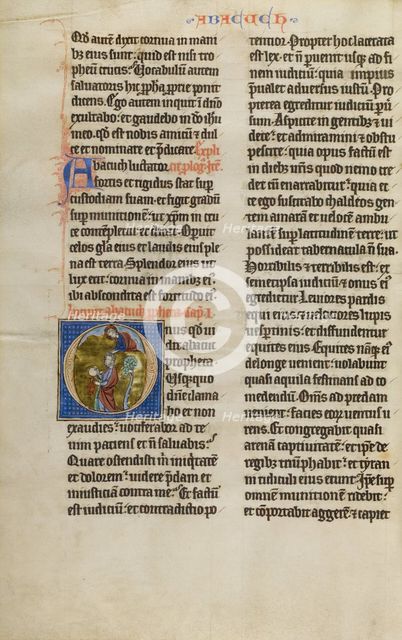 ABACUCH
Qd̄ autē dixit cornua in mani
bz eius sunt: quid est nisi tro
pheū crucis? Uocabulū autem
saluatoris hic ꝓpha ꝑte ponit
dicens. Ego autem in quit i dnō
exultabo: et gaudebo in dō ihu
meo. qd est nobis amicū & dulc
e et nominare et p̄dicare. Expli
Abacuch luctator
fortis et rigidus stat sup
custodiam suam: et figit gradū
sup munitionē: ut xp̄m in cru
ce contēpletur et dicat. Opuit
celos gl̄a eius et laudis eius ple
na est terra. Splendor eius ut
lux erit: cornua in manibz ei.
ibi abscondita est fortitudo ei.
Incipit abacuch ꝓpheta. Cap. I.
Onus qd ui
dit abacuc
propheta.
Usq; quo
dn̄e clama
bo et non
exaudies: uociferabor ad te
uim paciens et n̄ saluabis?
Quare ostendisti m iniq̄tatem
et dolorem: uidere p̄dam et
iniusticiā contra me? Et factū
est iudiciū: et contradictio po
tentior. Propter hoc lacerata
est lex: et n̄ ꝑuenit usq; ad fi
nem iudiciū: quia impius
p̄ualet aduersus iustū. Pro
pterea egreditur iudiciū ꝑuer
sum. Aspicite in gentibz & ui
dete: et admiramini & obstu
pescite: quia opus factū est
in diebz ur̄is quod nemo cre
det cū enarrabitur: quia ec
ce ego suscitabo chaldeos gen
tem amarā et uelocē ambu
lantē sup latitudinē terre: ut
possideat tabernacula n̄ sua.
Horribilis & terribilis est: ex
semetipsa iudiciū & onus ei
egredietur. Leuiores pardis
equi eius: & uelociores lupis
uespertinis: et diffundentur
equites eius. Equites nāq; ei
de longe uenient: uolabunt
quasi aquila festinans ad co
medendū. Om̄s ad predam
uenient: facies eoꝝ uentus u
rens. Et congregabit quasi
arenā captiuitatē: et ip̄e de
regibz triūphabit: et tyran
ni ridiculi eius erunt. Ip̄e sup
omnē munitionē ridebit:
et cōportabit aggerē & capiet
Heritage
Heritage
Heritage